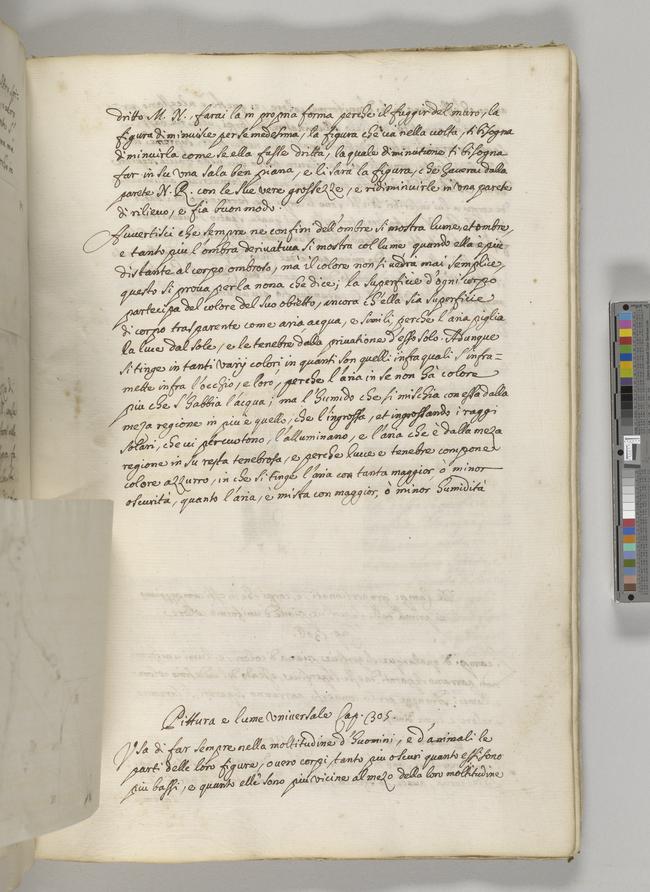 dritto M. N., farai la in propria forma perche il fuggir del muro, la
figura diminuisce per se medesima, la figura che va nella volta, ti bisogna
diminuirla come se ella fusse dritta, la quale diminutione ti bisogna
far in su una sala ben piana, e li sarà la figura, che havrai dalla
parete N. R. con le sue vere grossezze, e ridiminuirle in una parete
di rilievo, e fia buon modo.
Avvertisci che sempre ne confini dell'ombre si mostra lume, et ombre,
e tanto piu l'ombra derivativa si mostra col lume quando ella è piu
distante al corpo ombroso, mà il colore non si vedrà mai semplice,
questo si prova per la nona che dice; la superficie d'ogni corpo
partecipa del colore del suo obietto, ancora ch'ella sia superficie
di corpo trasparente come aria acqua, e simili, perche l'aria piglia
la luce dal sole, e le tenebre dalla privatione d'esso solo. Adunque
si tinge in tanti varij colori in quanti son quelli infra quali s'infra=
mette infra l'occhio, e loro, perche l'aria in se non hà colore
piu che s'habbia l'acqua; ma l'humido che si mischia con essa dalla
meza regione in piu è quello, che l'ingrossa, et ingrossando i raggi
solari, che vi percuotono, l'alluminano, e l'aria che è dalla meza
regione in su resta tenebrosa, e perche luce e tenebre compone
colore azzurro, in che si tinge l'aria con tanta maggior ò minor
oscurità, quanto l'aria, è mista con maggior, ò minor humidità
Pittura e lume universale Cap. 305.
Usa di far sempre nella moltitudine d'huomini, e d'animali le
parti delle loro figure, overo corpi tanto piu oscuri quanto essi sono
piu bassi, e quanto elle sono piu vicine al mezo della loro moltitudine